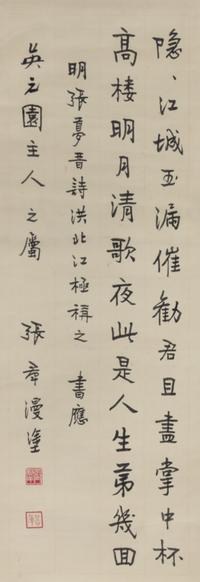 隐〻江城玉漏催勸君且盡掌中杯
高楼明月清歌夜此是人生苐幾囬
明張夢晋詩洪北江極稱之 書應
吳元園主人之屬 張羣漫塗